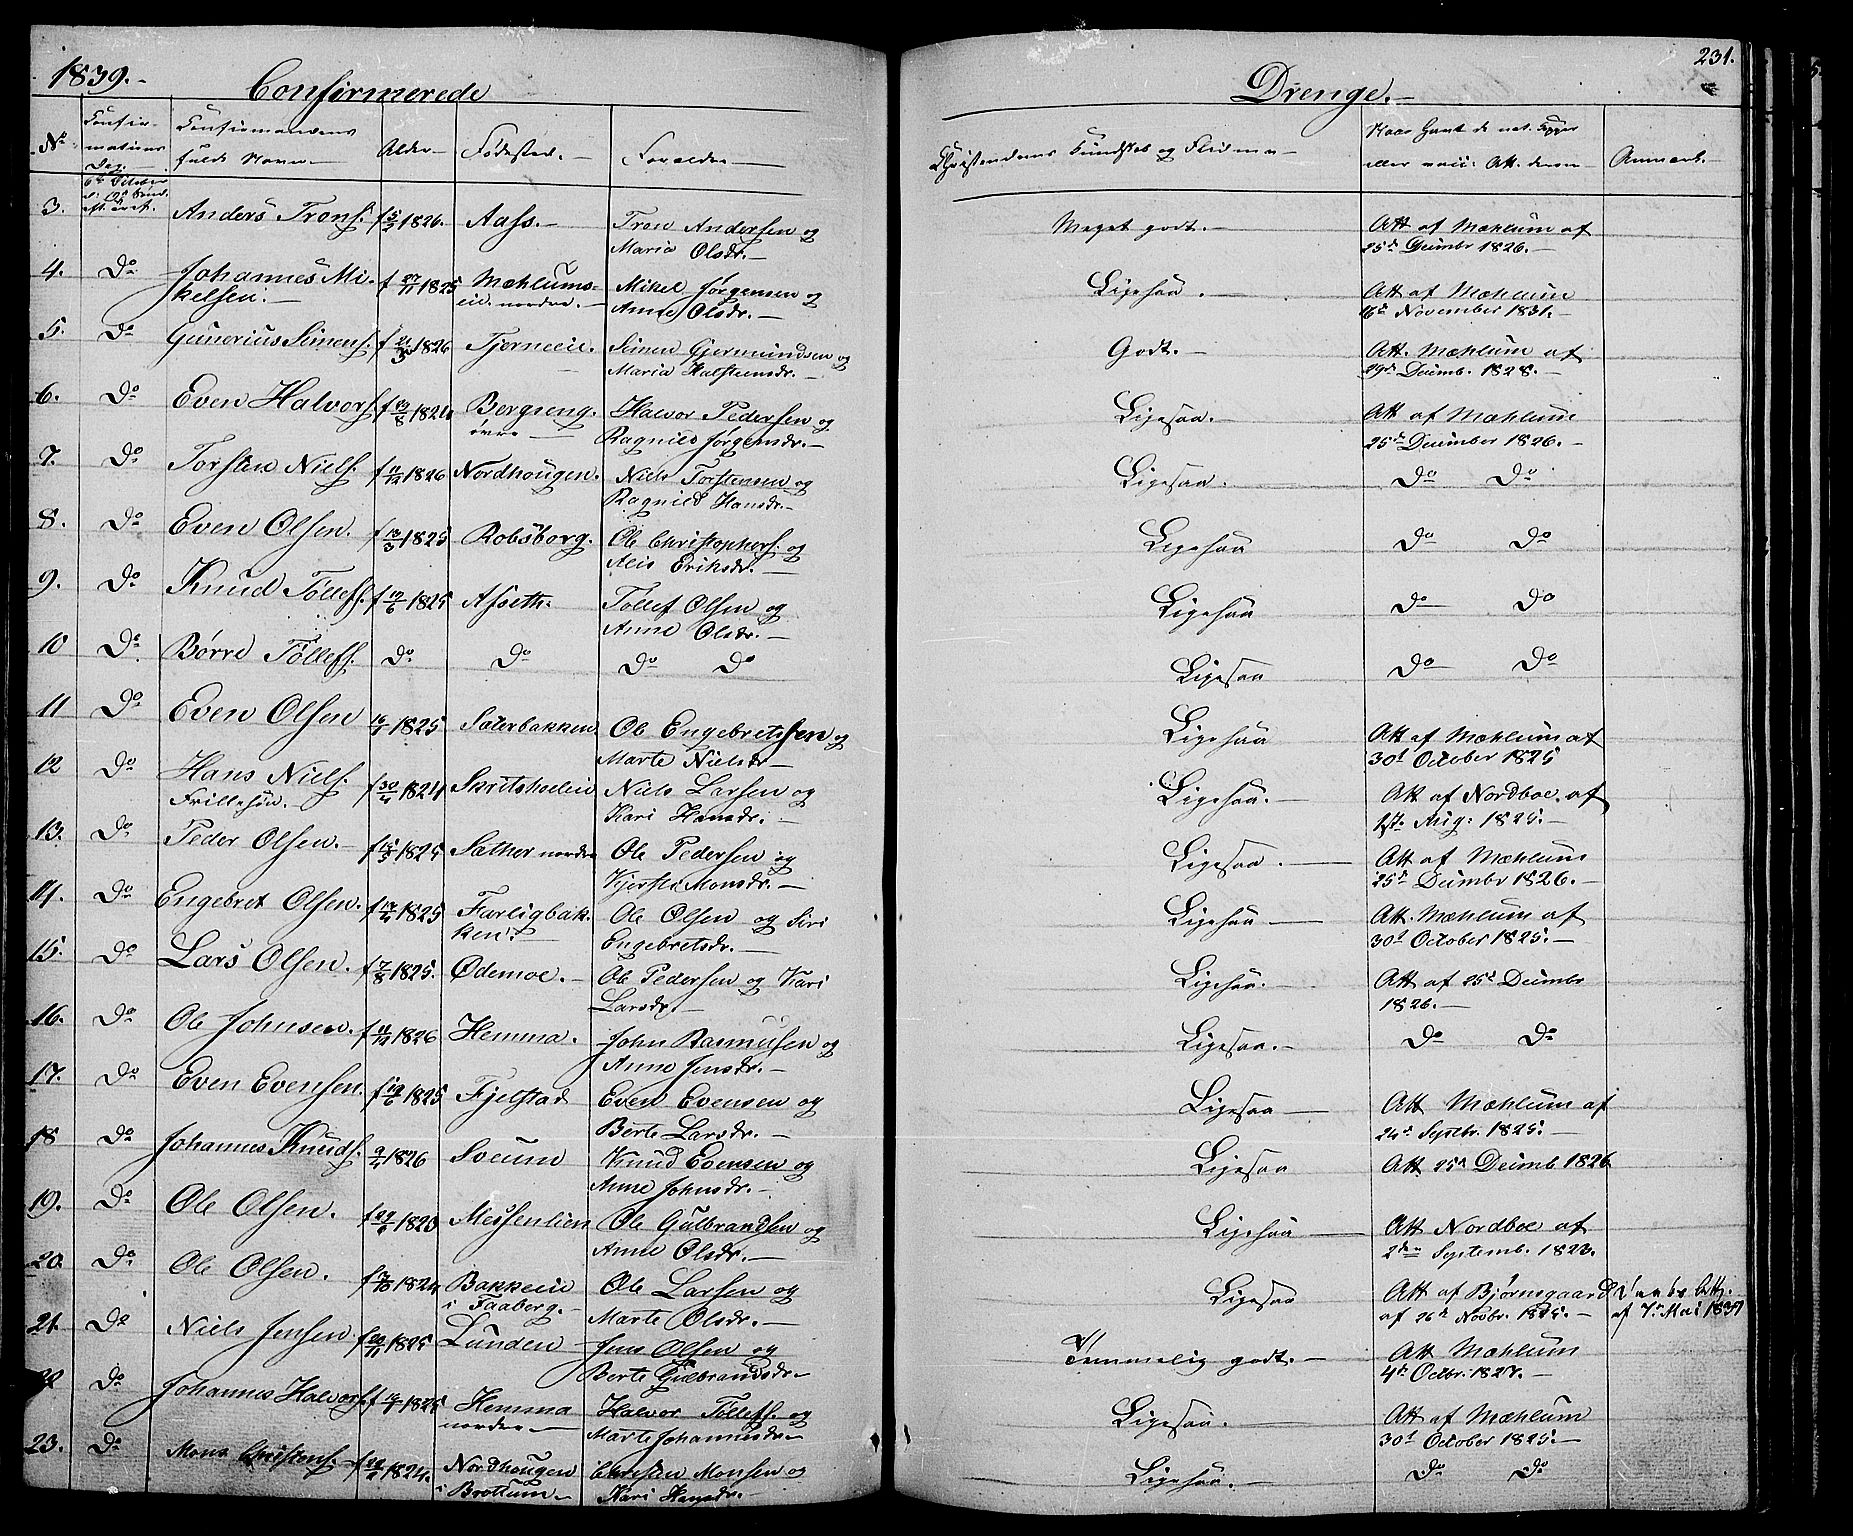 1839.-
Confirmerede
Drenge.-
231.
No
Confir-
mations
Dag.
Confirmandens
fulde Navn.-
Alder-
Fødested.-
Forældre-
Christendoms Kundskab og Flid m. m-
Naar havt de nat. Kopper
eller vacc: Att. derom
Anmærk.-
6te October
3. Anders Trons. f 5/3 1826. Aass.- Tron Andersen og
Maria Olsdr.-
Meget godt.-
Att af Mæhlum af
25de Decembr 1826.-
4. Do Johannes Mi-
kelsen.- f 27/11 1825 Mæhlums-
eie nordre.- Mikel Jørgensen og
Anne Olsdr.-
Ligesaa.-
Att af Mæhlum
16de November 1831.-
5. Do Gunerius Simens. f 21/3 1826 Tjerneeie. Simen Gjermundsen og
Maria Halsteensdr.-
Godt.-
Att. Mæhlum af
29de Decemb. 1828.-
6. Do Even Halvors. f 1824 Bergseng.
øvre- Halvor Pedersen og
Ragnild Jørgensdr.-
Ligesaa.-
Att af Mæhlum
25de December 1826.-
7. Do Torsten Niels. f 11/12 1826 Nordhougen. Niels Torstensen og
Ragnild Hansdr.-
Ligesaa.
Do Do
8. Do Even Olsen. f 13/3 1825 Robsborg. Ole Christophers. og
Eriksdr.-
Ligesaa
Do Do
9. Do Knud Tøllefs. f 19/6 1825 Asseth. Tøllef Olsen og
Anne Olsdr.-
Ligesaa
Do Do
10 Do Børre Tøllefs. Do Do Do Do
Ligesaa
Do Do
11 Do Even Olsen 1825 Sæterbakken Ole Engebretssen og
Marte Nielsdr-
Ligesaa
Att af Mæhlum af
30te October 1825
12 Do Hans Niels.
Frillesøn. f 30/4 1824 Niels Larsen og
Kari Hansdr.-
Ligesaa.-
Att af Nordboe. af
1ste Aug: 1825.-
13. Do Peder Olsen.- f 15/3 1825 Sæther nordre Ole Pedersen og
Kjersti Monsdr.-
Ligesaa.-
Att af Mæhlum
25de Decembr 1826.-
14. Do Engebret Olsen. f 1825 Farligbak-
ken.- Ole Olsen og Siri
Engebretsdr.-
Ligesaa-
Att. Mæhlum af
30te October 1825.-
15. Do Lars Olsen. f 7/8 1825. Ødemoe.- Ole Pedersen og Kari
Larsdr.-
Ligesaa.-
Att af 25de Decembr
1826.-
16. Do Ole Johnsen. f 11/12 1826 Hemma. John Rasmussen og
Anne Jensdr.-
Ligesaa.-
Do Do
17. Do Even Evensen. f 19/6 1825 Fjelstad Even Evensen og
Berte Larsdr.-
Ligesaa-
Att Mæhlum af
24de Septbr. 1825.-
18 Do Johannes Knuds. 9/4 1826 Sveum Knud Evensen og
Anne Johnsdr.-
Ligesaa
Att 25de Decemb. 1826
19. Do Ole Olsen. f 1823 Messenlien Ole Gulbrandsen og
Anne Olsdr.-
Ligesaa-
Att Nordboe af
2den Septemb. 1823.
20. Do Ole Olsen. f 1824 Bakkeeie
i Faaberg.- Ole Larsen og
Marte Olsdr.-
Ligesaa
Att af Bjørnsgaard
af 26de Novbr. 1825.-
Daabs Att.
af 7de Mai 1839
21. Do Niels Jensen f 20/11 1825 Lunden Jens Olsen og
Berte Gulbrandsdr-
Temmelig godt.-
Att Mæhlum
4de Octbr. 1827.-
22 Do Johannes Halvors. f 1825 Hemma
nordre- Halvor Tøllefs. og
Marte Johannesdr-
Ligesaa.-
Att af Mæhlum
30te October 1825.-
23. Do Mons Christens. f 1824. Nordhougen
i Brøttum- Christen Monsen og
Kari Hansdr.-
Ligesaa.-
Do Do